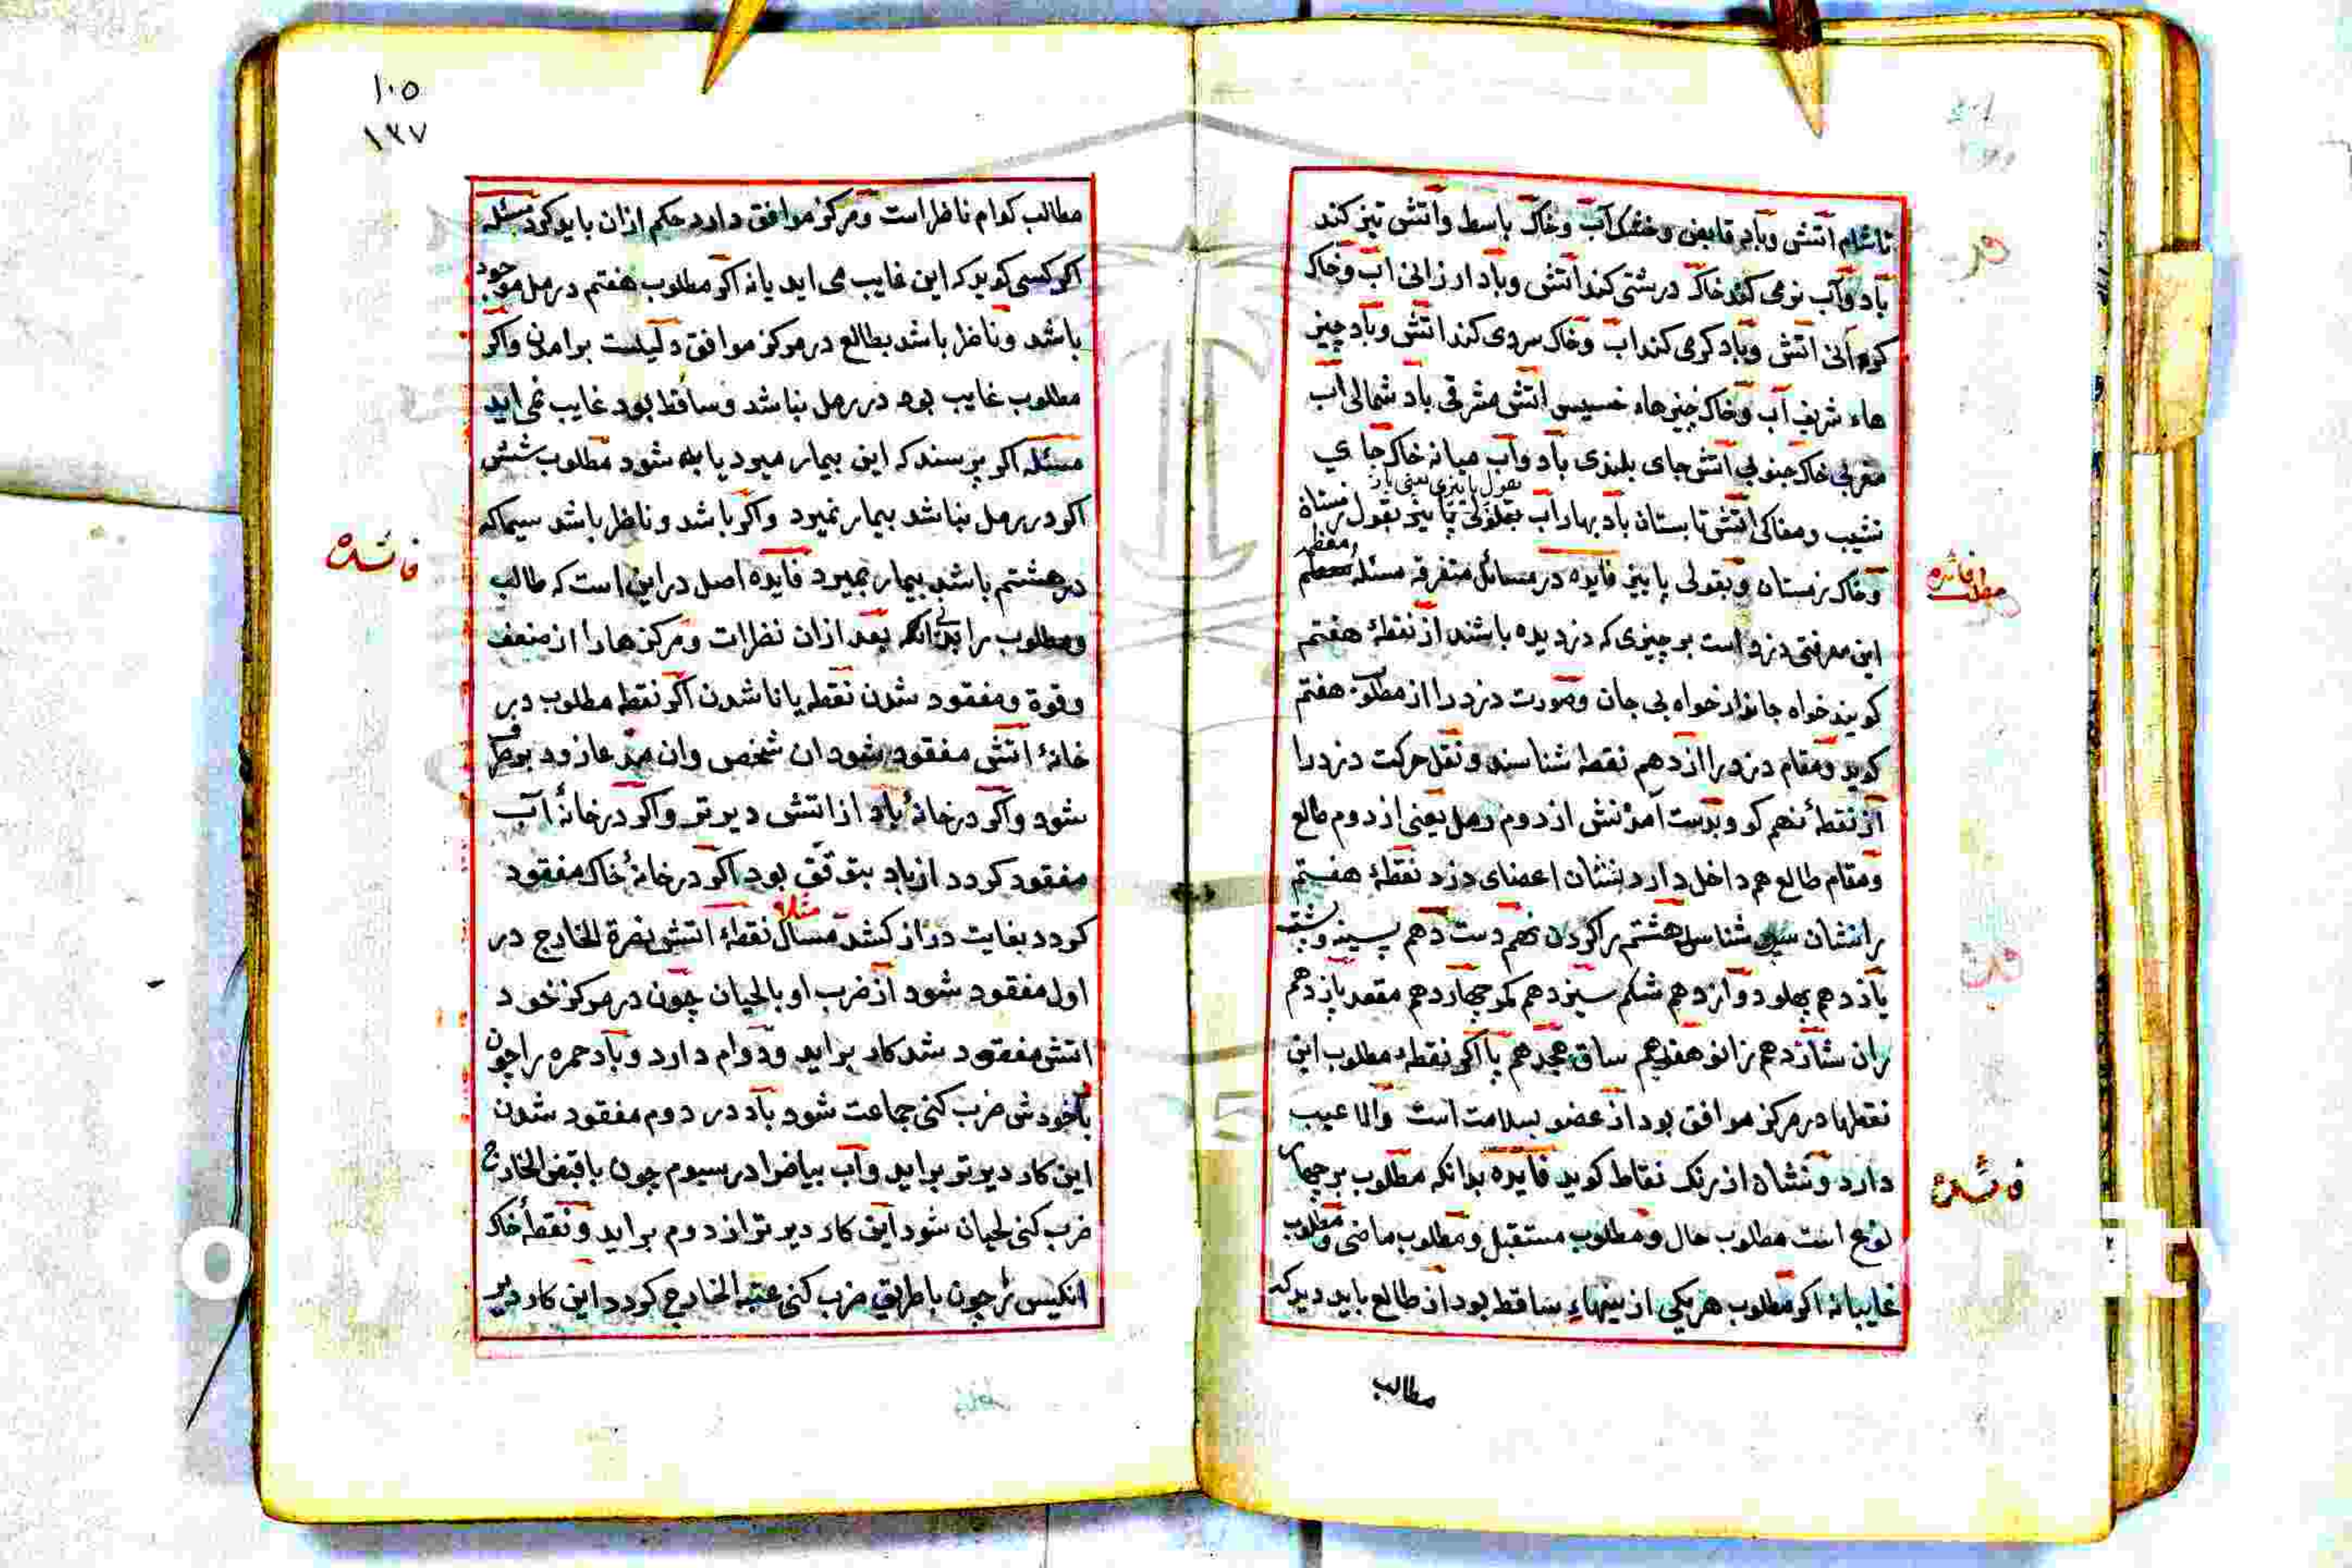 تا شام اتش وباد قابض وخشک آب وخاک باسط واتش تیز کند
باد وآب نرمی کند خاک درشتی کند اتش وباد ارزانی اب وخاک
کرانی اتش وباد کرمی کند اب وخاک سردی کند اتش وباد چیز
هاء شریف آب وخاک چیزهاء خسیس اتش مشرقی باد شمالی اب
مغربی خاک جنوبی اتش جای بلندی باد واب میانه خاک جا ی
نشیب ومغاکی اتش تابستان باد بهار آب بقولی پاییز بقول زمستان
وخاک زمستان وبقولی پاییز فایده در مسائل متفرقه مسئله
معظم
این معرفتی دزد است بر چیزی که دزدیده باشند از نقطهٔ هفتم
کویند خواه جاندار خواه بی جان وصورت دزد را از مطلوب هفتم
کوید ومقام دزد را از دهم نقطه شناسند ونقل حرکت دزد را
از نقطهٔ نهم کو وبدست آمدنش از دوم رمل یعنی از دوم طالع
ومقام طالع هم داخل دارد نشان اعضای دزد نقطهٔ هفتم
را نشان سر شناس هشتم را کردن نهم دست دهم سینه وپشت
یازدهم پهلو دوازدهم شکم سیزدهم کمر چهاردهم مقعد پانزدهم
ران شانزدهم زانو هفدهم ساق هجدهم پا اکر نقطهء مطلوب این
نقطها در مرکز موافق بود از عضو بسلامت است والا عیب
دارد ونشان از رنک نقاط کوید فایده بدانکه مطلوب بر چهار
نوع است مطلوب حال ومطلوب مستقبل ومطلوب ماضی ومطلوب
غایبانه اکر مطلوب هریکی از ینهاء ساقط بود از طالع باید دید که
مطالب
فائده
مطلب
فائده
۱۰۵
۱۳۷
مطالب کدام ناظر است ومرکز موافق دارد حکم ازان باید کرد مسئله
اکر کسی کوید که این غایب می اید یا نه اکر مطلوب هفتم در رمل موجود
باشد وناظر باشد بطالع در مرکز موافق دلیلست بر امدن واکر
مطلوب غایب بود در رمل نباشد وساقط بود غایب نمی اید
مسئله اکر پرسند که این بیمار میرد یا به شود مطلوب شش
اکر در رمل نباشد بیمار نمیرد واکر باشد وناظر باشد سیما که
در هشتم باشد بیمار بمیرد فایده اصل دراین است که طالب
ومطلوب را بدانکه بعد ازان نظرات ومرکزها را از ضعف
وقوة ومفقود شدن نقطه یا ناشدن اکر نقطه مطلوب در
خانهٔ اتش مفقود شود ان شخص وان مدعا زود برطرف
شود واکر در خانهٔ باد از اتش دیرتر واکر در خانهٔ آب
مفقود کردد از باد بتوقف بود اکر در خانهٔ خاک مفقود
کردد بغایت دراز کشد مثال نقطهء اتش نصرة الخارج در
اول مفقود شود از ضرب او با لحیان چون در مرکز خود
اتش مفقود شد کار براید ودوام دارد وباد حمره را چون
باخودش ضرب کنی جماعت شود باد در دوم مفقود شدن
این کار دیرتر براید واب بیاض را در سیوم چون با قبض الخارج
ضرب کنی لحیان شود این کار دیرتر از دوم براید ونقطهٔ خاک
انکیس را چون با طریق ضرب کنی عتبة الخارج کردد این کار دیر
فائده